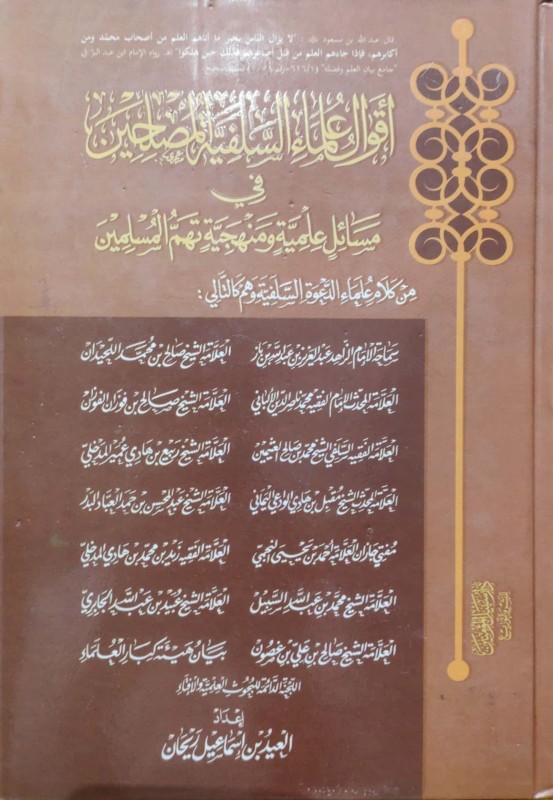 قال عبد الله بن مسعود : "لا يزال الناس بخير ما أتاهم العلم من أصحاب محمد ومن
أكابرهم، فإذا جاءهم العلم من قبل أصاغرهم فذلك حين هلكوا" رواه الإمام ابن عبد البر في
"جامع بيان العلم وفضله"
أقوال علماء السلفية المصلحين
في
مسائل علمية ومنهجية تهم المسلمين
من كلام علماء الدعوة السلفية وهم كالتالي :
سماحة الإمام الزاهد عبد العزيز بن عبد الله بن باز
العلامة الشيخ صالح بن محمد اللحيدان
العلامة المحدث الإمام الفقيه محمد ناصر الدين الألباني
العلامة الشيخ صالح بن فوزان الفوزان
العلامة الفقيه السلفي الشيخ محمد بن صالح العثيمين
العلامة الشيخ ربيع بن هادي عمير المدخلي
العلامة المحدث الشيخ مقبل بن هادي الوادعي اليماني
العلامة الشيخ عبد المحسن بن حمد العباد البدر
مفتي جازان العلامة أحمد بن يحيى النجمي
العلامة الفقيه زيد بن محمد بن هادي المدخلي
العلامة الشيخ محمد بن عبد الله السبيل
العلامة الشيخ عبيد بن عبد الله الجابري
العلامة الشيخ صالح بن علي بن غصون
بيان هيئة كبار العلماء
اللجنة الدائمة للبحوث العلمية والإفتاء
إعداد
العيد بن إسماعيل ريحان